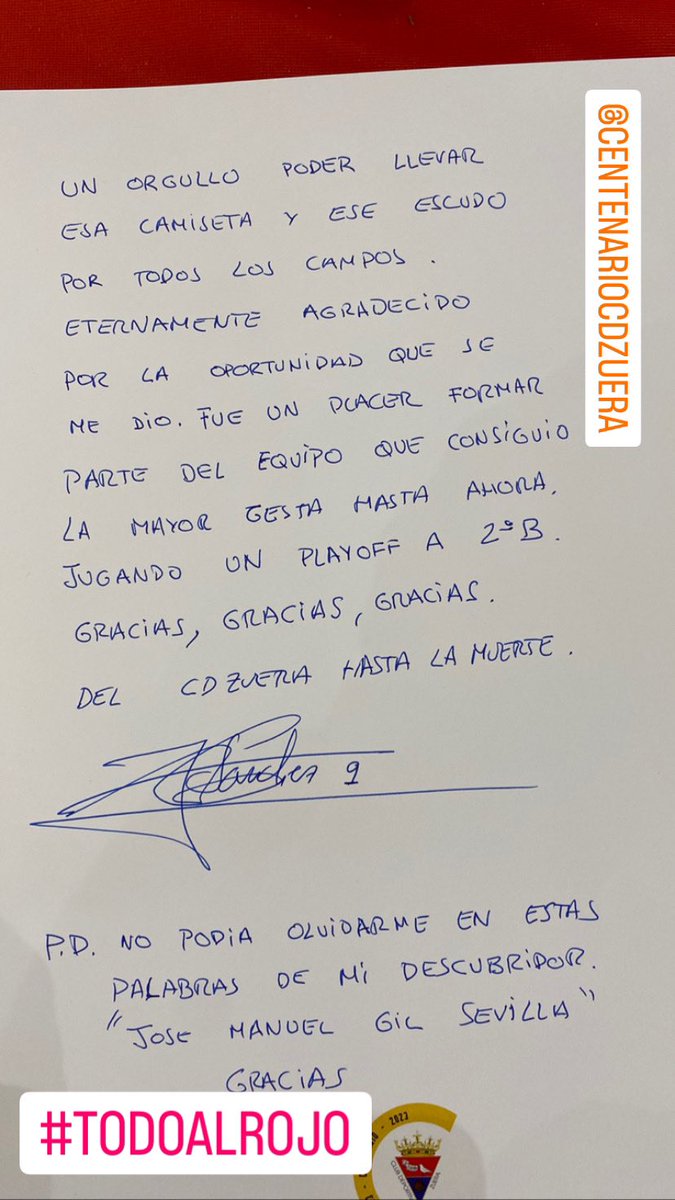 UN ORGULLO PODER LLEVAR
ESA CAMISETA Y ESE ESCUDO
POR TODOS LOS CAMPOS.
ETERNAMENTE AGRADECIDO
POR LA OPORTUNIDAD QUE SE
ME DIO. FUE UN PLACER FORMAR
PARTE DEL EQUIPO QUE CONSIGUIO
LA MAYOR GESTA HASTA AHORA.
JUGANDO UN PLAYOFF A 2ºB.
GRACIAS, GRACIAS, GRACIAS.
DEL CD ZUERA HASTA LA MUERTE.
9
P.D. NO PODIA OLVIDARME EN ESTAS
PALABRAS DE MI DESCUBRIDOR.
"JOSE MANUEL GIL SEVILLA"
GRACIAS
@CENTENARIOCDZUERA
#TODOALROJO
2023
CLUB DEPORTIVO
ZUERA